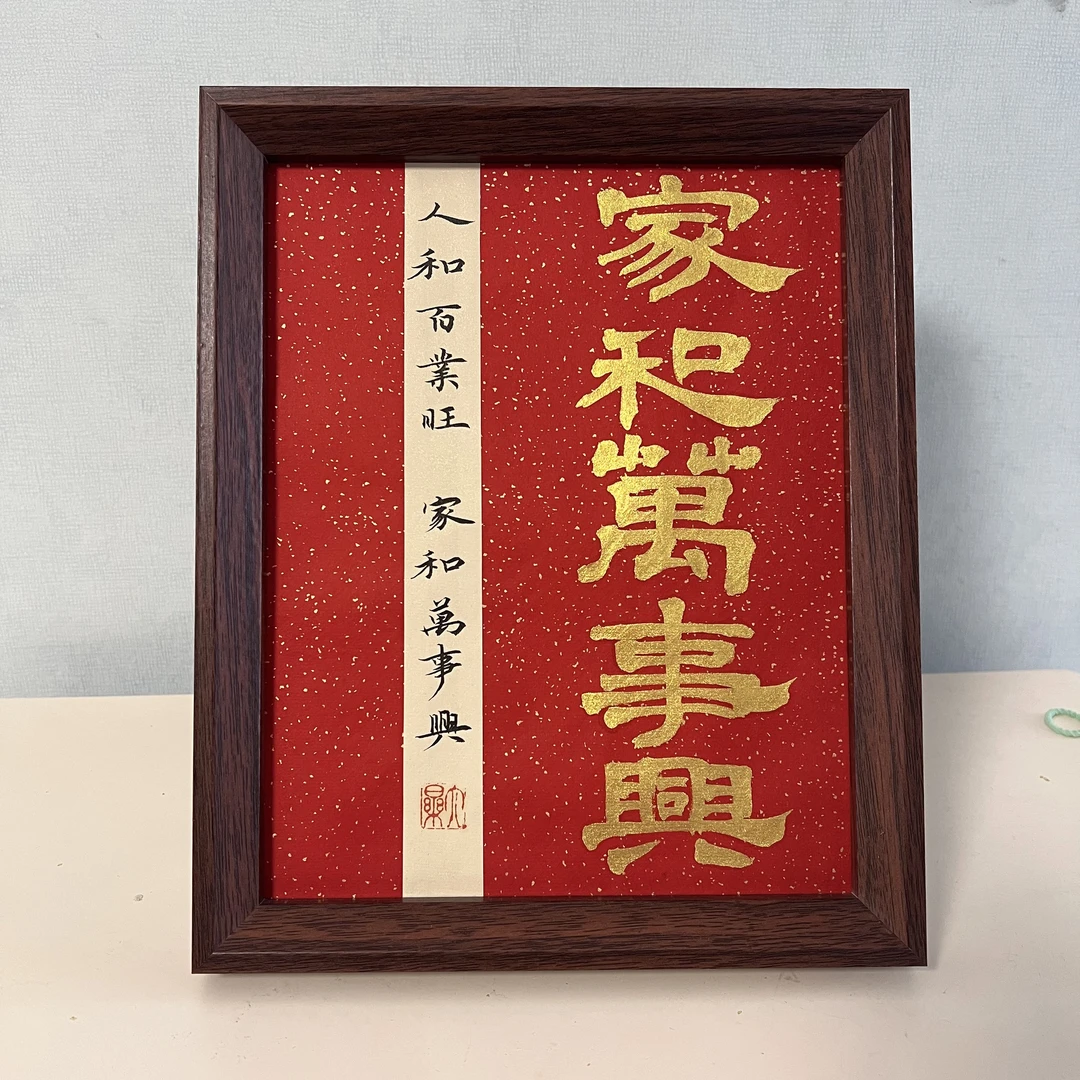 家和萬事興
人和百業旺 家和萬事興